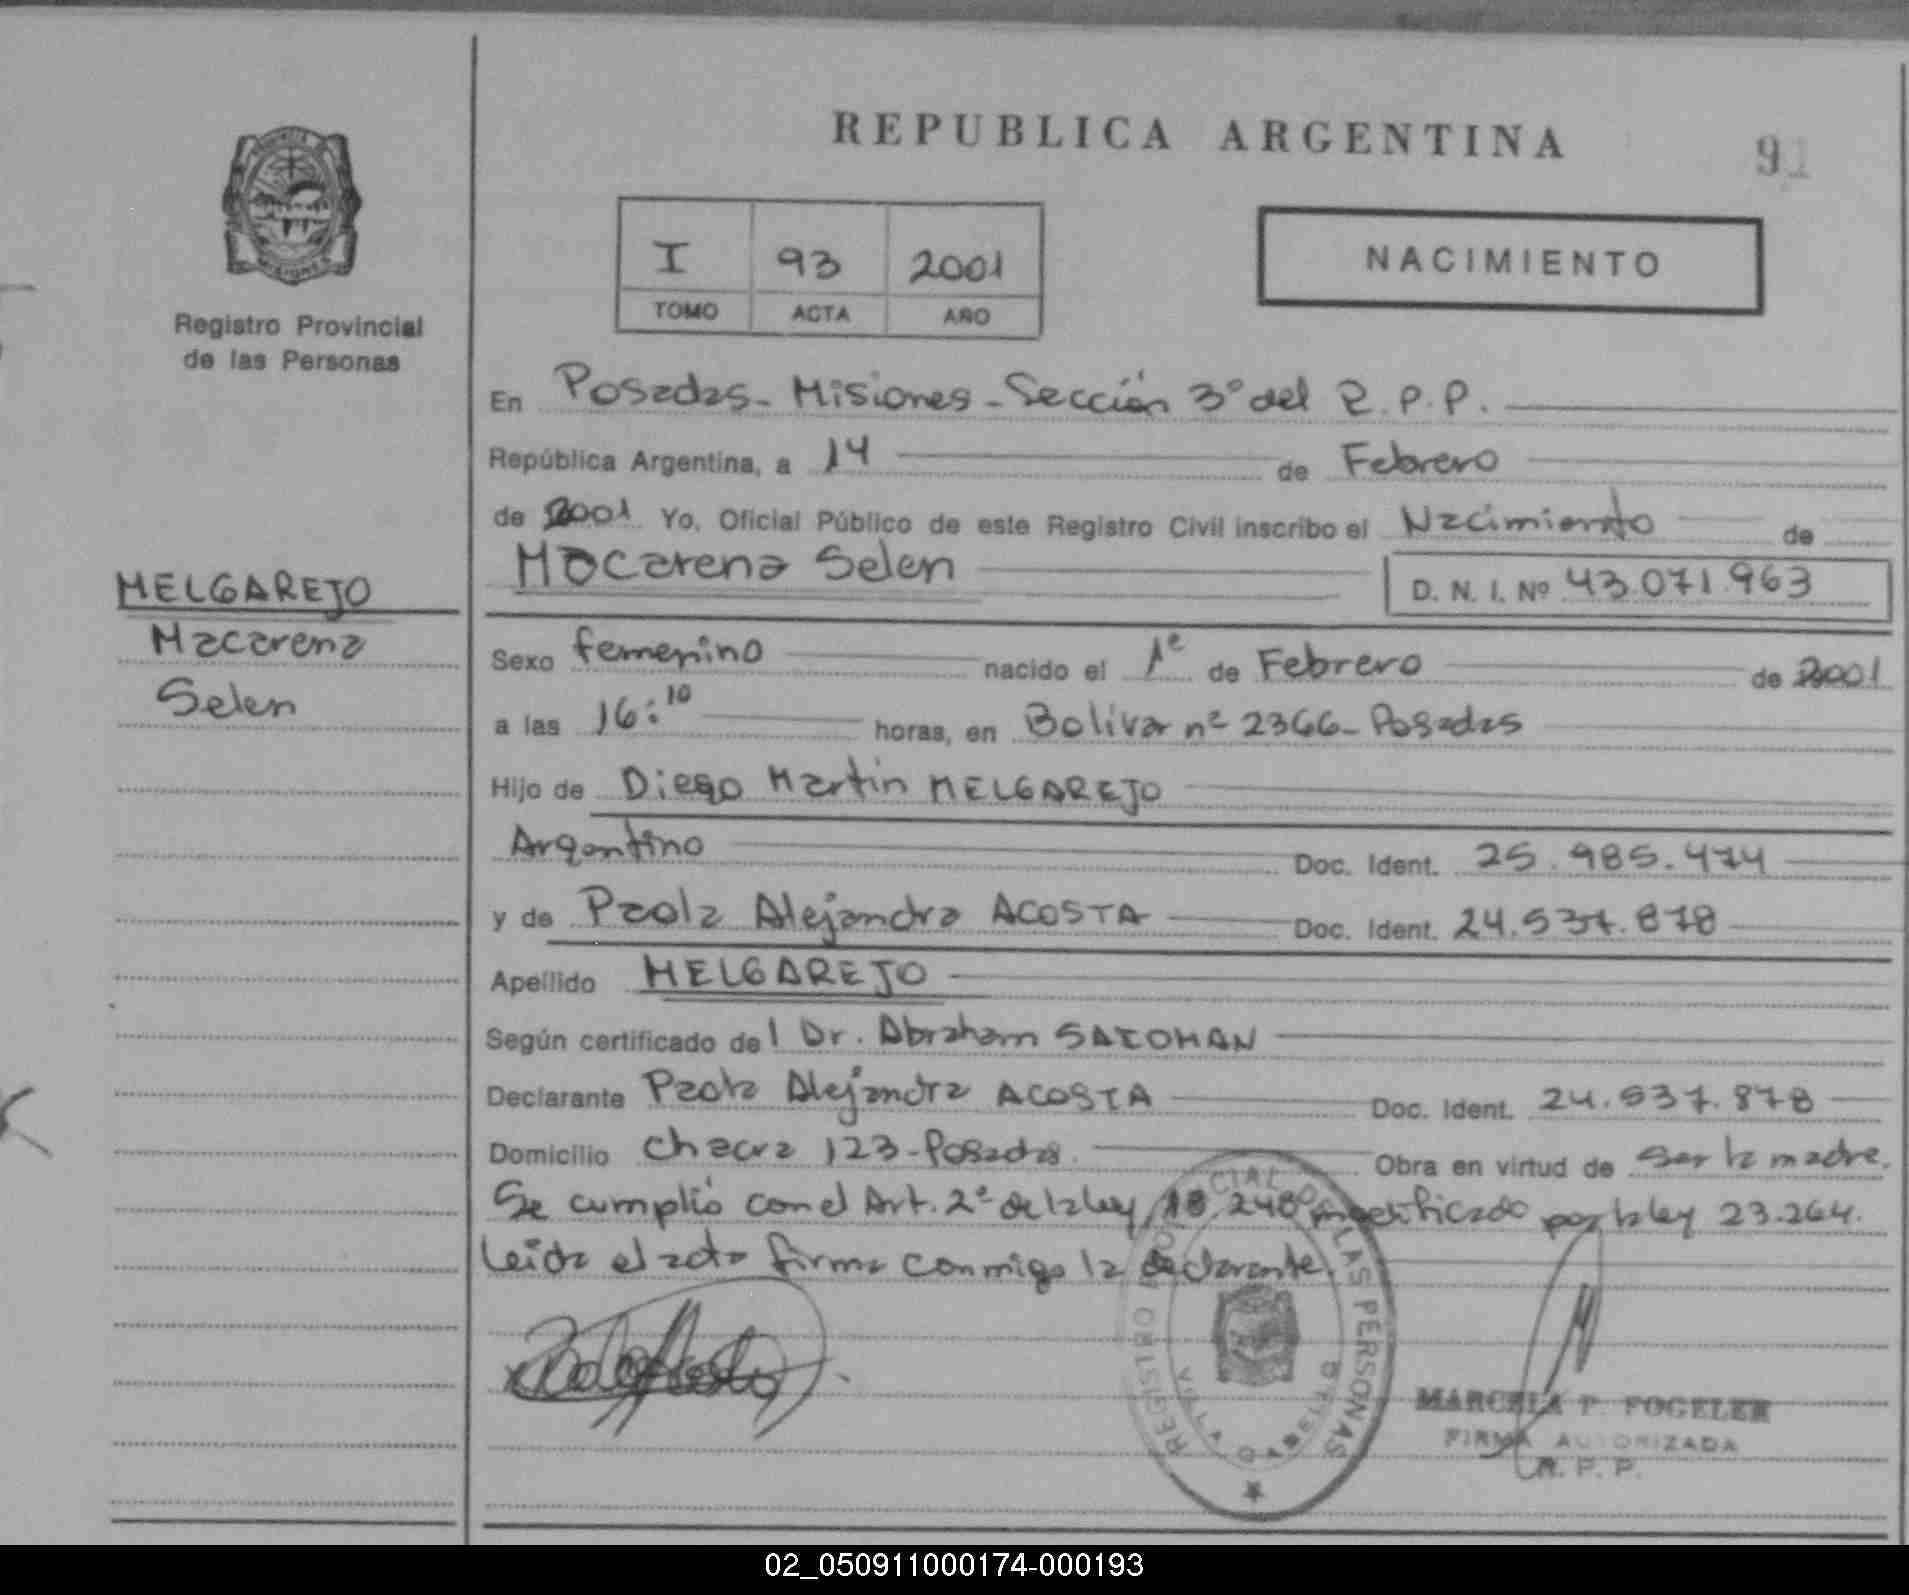 REPUBLICA ARGENTINA
91
I 93 2001
TOMO ACTA AÑO
NACIMIENTO
Registro Provincial
de las Personas
En Posadas - Misiones - Sección 3° del R.P.P.
República Argentina, a 14 de Febrero
de 2001 Yo, Oficial Público de este Registro Civil inscribo el Nacimiento de
Macarena Selen D. N. I. Nº 43.071.963
MELGAREJO
Macarena
Selen
Sexo femenino nacido el 1º de Febrero de 2001
a las 16:10 horas, en Bolivar nº 2366 - Posadas
Hijo de Diego Martín MELGAREJO
Argentino Doc. Ident. 25.985.474
y de Paola Alejandra ACOSTA Doc. Ident. 24.537.878
Apellido MELGAREJO
Según certificado del Dr. Abraham
Declarante Paola Alejandra ACOSTA Doc. Ident. 24.537.878
Domicilio Chacra 123 - Posadas. Obra en virtud de ser la madre.
Se cumplió con el Art. 2º de la ley 18.248 modificado por la ley 23.264.
Leida el acta firma conmigo la declarante.
REGISTRO PROVINCIAL DE LAS PERSONAS
VILLA CABELLO
MARCELA P. FOGELER
FIRMA AUTORIZADA
R. P. P.
02_050911000174-000193